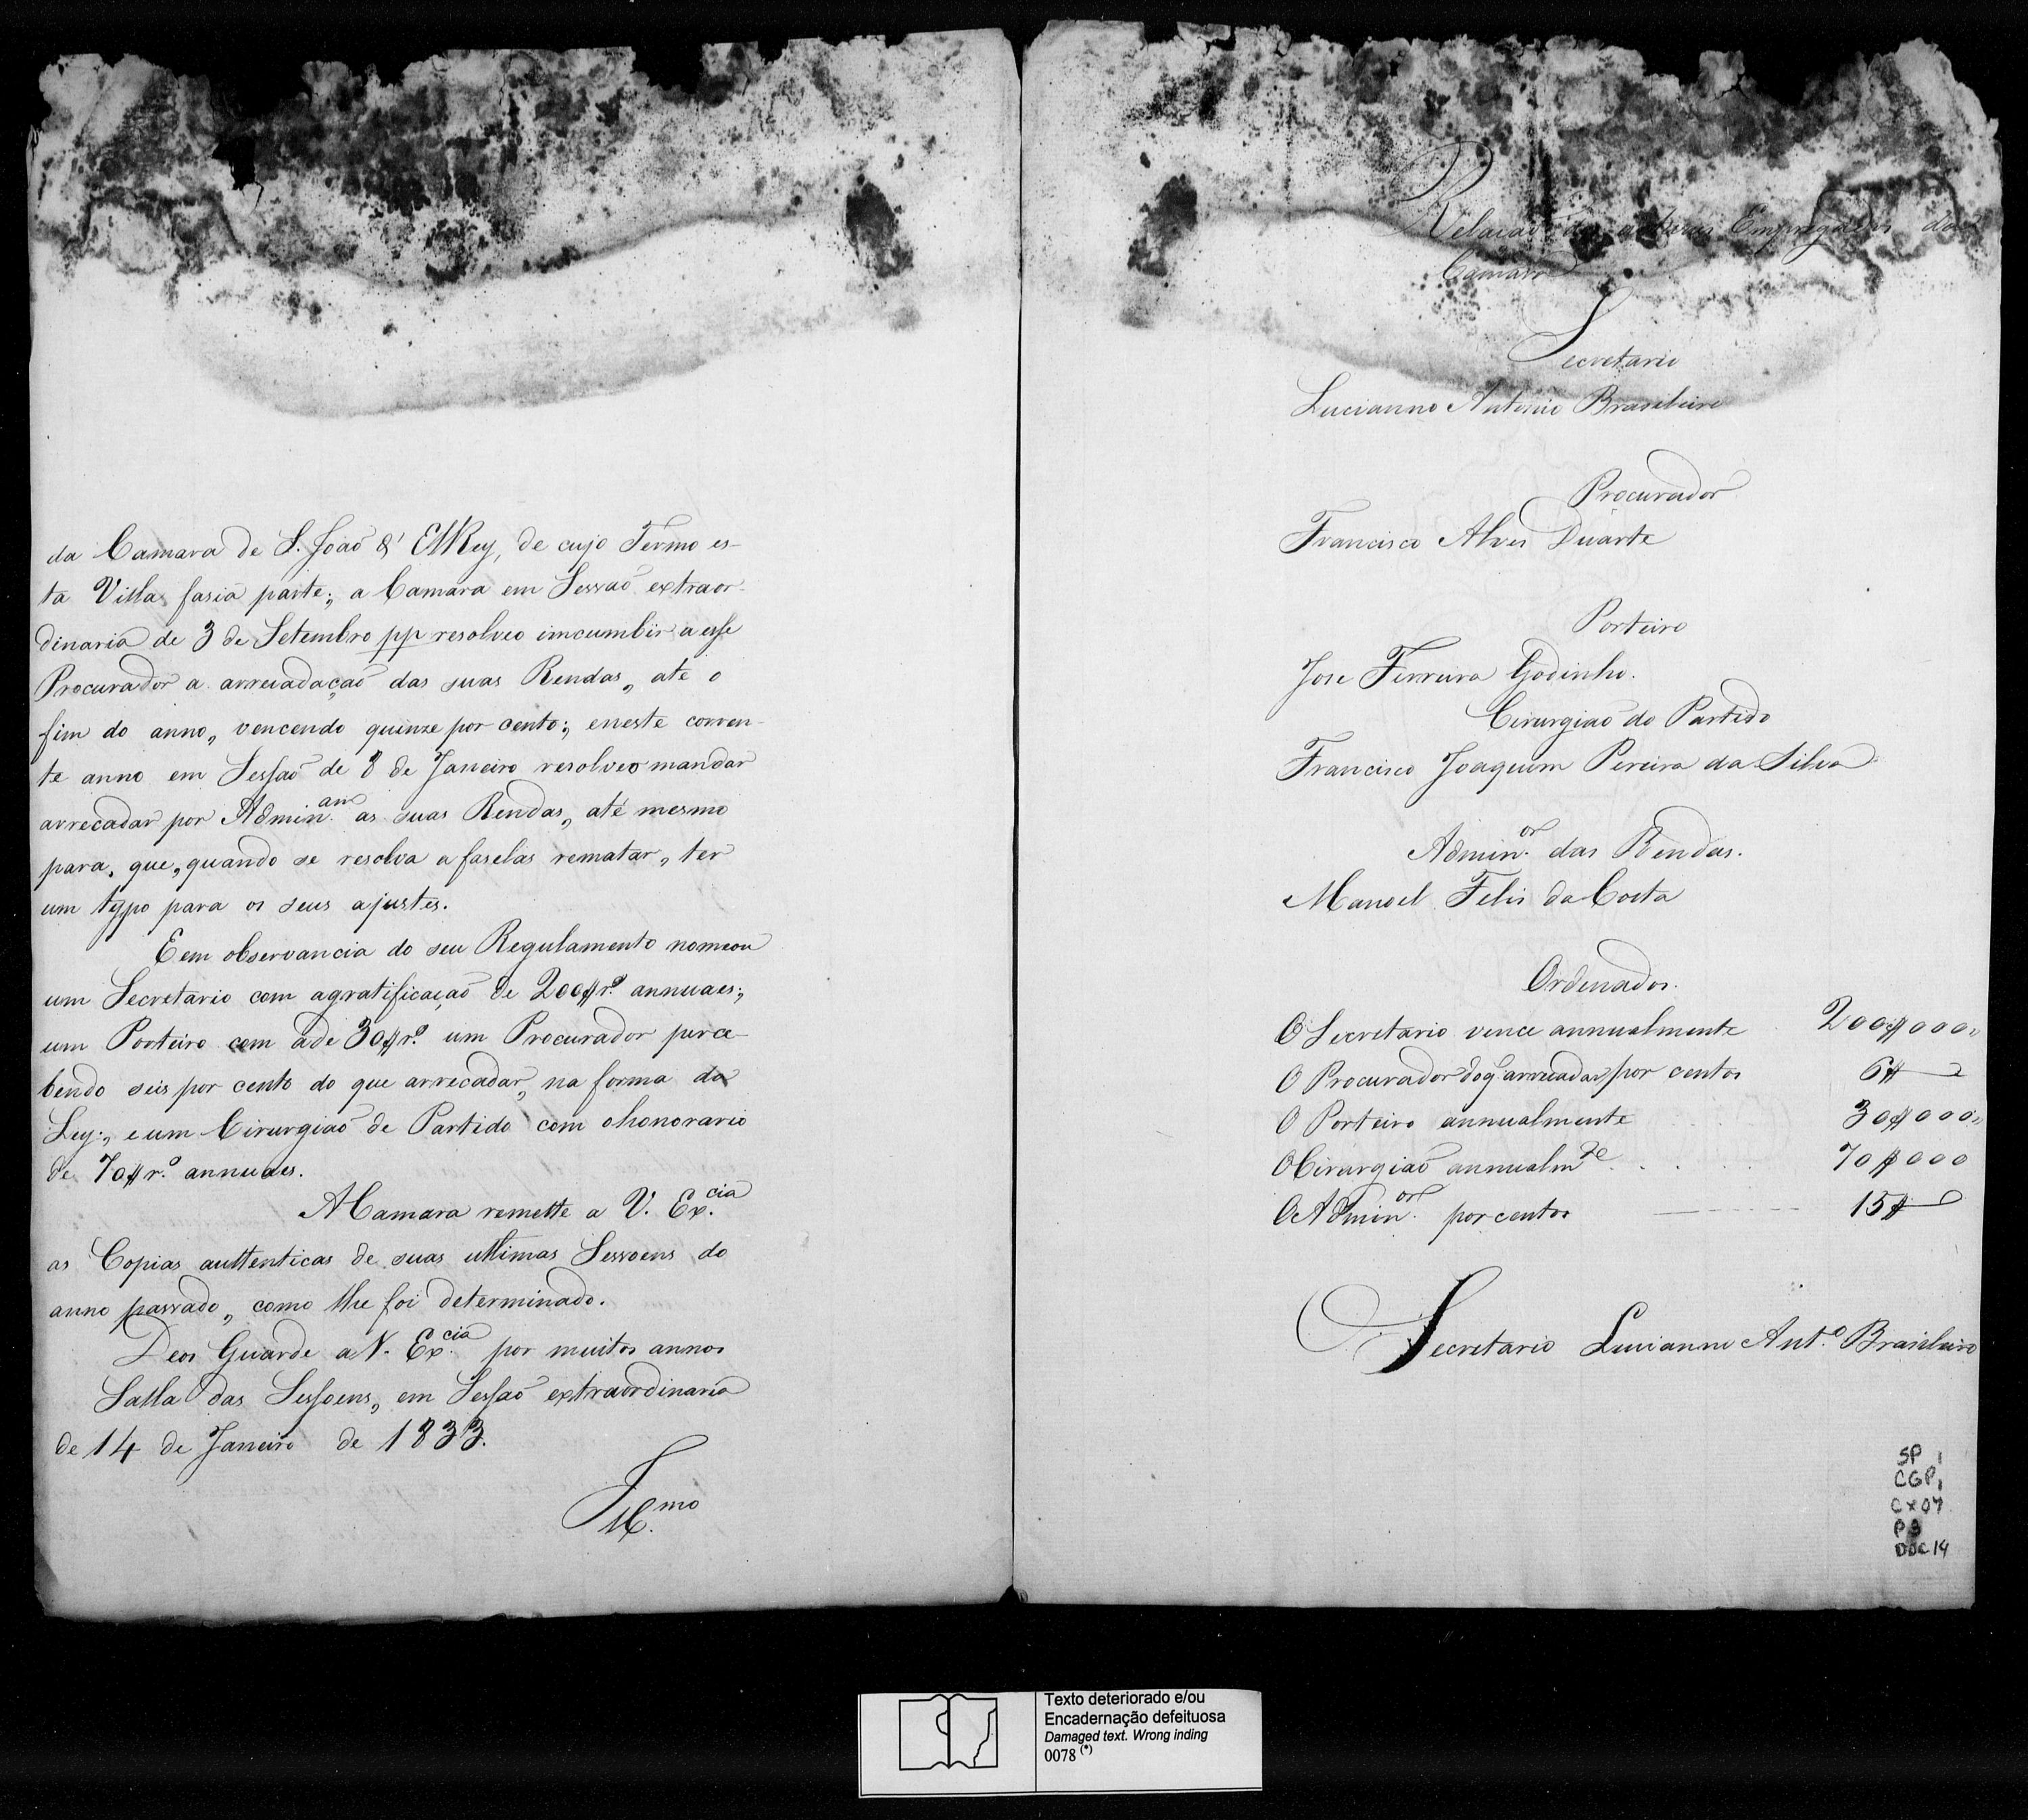 da Camara de S. João d' ElRey, de cujo Termo es-
ta Villa fasia parte; a Camara em Sessaõ extraor-
dinaria de 3 de Setembro pp resolveo imcumbir a esse
Procurador a arrecadaçaõ das suas Rendas, até o
fim do anno, vencendo quinze por cento; eneste corren-
te anno em Sessaõ de 8 de Janeiro resolveo mandar
arrecadar por Admin.am as suas Rendas, até mesmo
para, que, quando se resolva a faselas rematar, ter
um typo para os seus ajustes.
E em observancia do seu Regulamento nomeou
um Secretario com agratificaçaõ de 200$r.s annuaes;
um Porteiro com ade 30$r.s um Procurador perce-
bendo seis por cento do que arrecadar, na forma da
Ley; e um Cirurgiaõ de Partido com ohonorario
de 70$r.s annuaes.
A Camara remette a V. Ex.cia
as Copias authenticas de suas ultimas Sessoens do
anno passado, como lhe foi determinado.
Deos Guarde a V. Ex.cia por muitos annos
Salla das Sessoens, em Sessaõ extraordinaria
de 14 de Janeiro de 1833.
Ill.mo
Relaçaõ Empregados da
Camara
Secretario
Lucianno Antonio Brasileiro
Procurador
Francisco Alves Duarte
Porteiro
Jose Ferreira Godinho.
Cirurgiaõ do Partido
Francisco Joaquim Pereira da Silva
Admin.or das Rendas.
Manoel Felis da Costa
Ordenados.
O Secretario vence annualmente 200$000
O Procurador do q' arrecadar por centos 6$
O Porteiro annualmente 30$000
O Cirurgiaõ annualm.te 70$000
O Admin.or por centos 15$
Secretario Lucianno Ant.o Brasileiro
SP 1
CGP 1
Cx 07
P 3
DOC 14
Texto deteriorado e/ou
Encadernação defeituosa
Damaged text. Wrong inding
0078 (*)